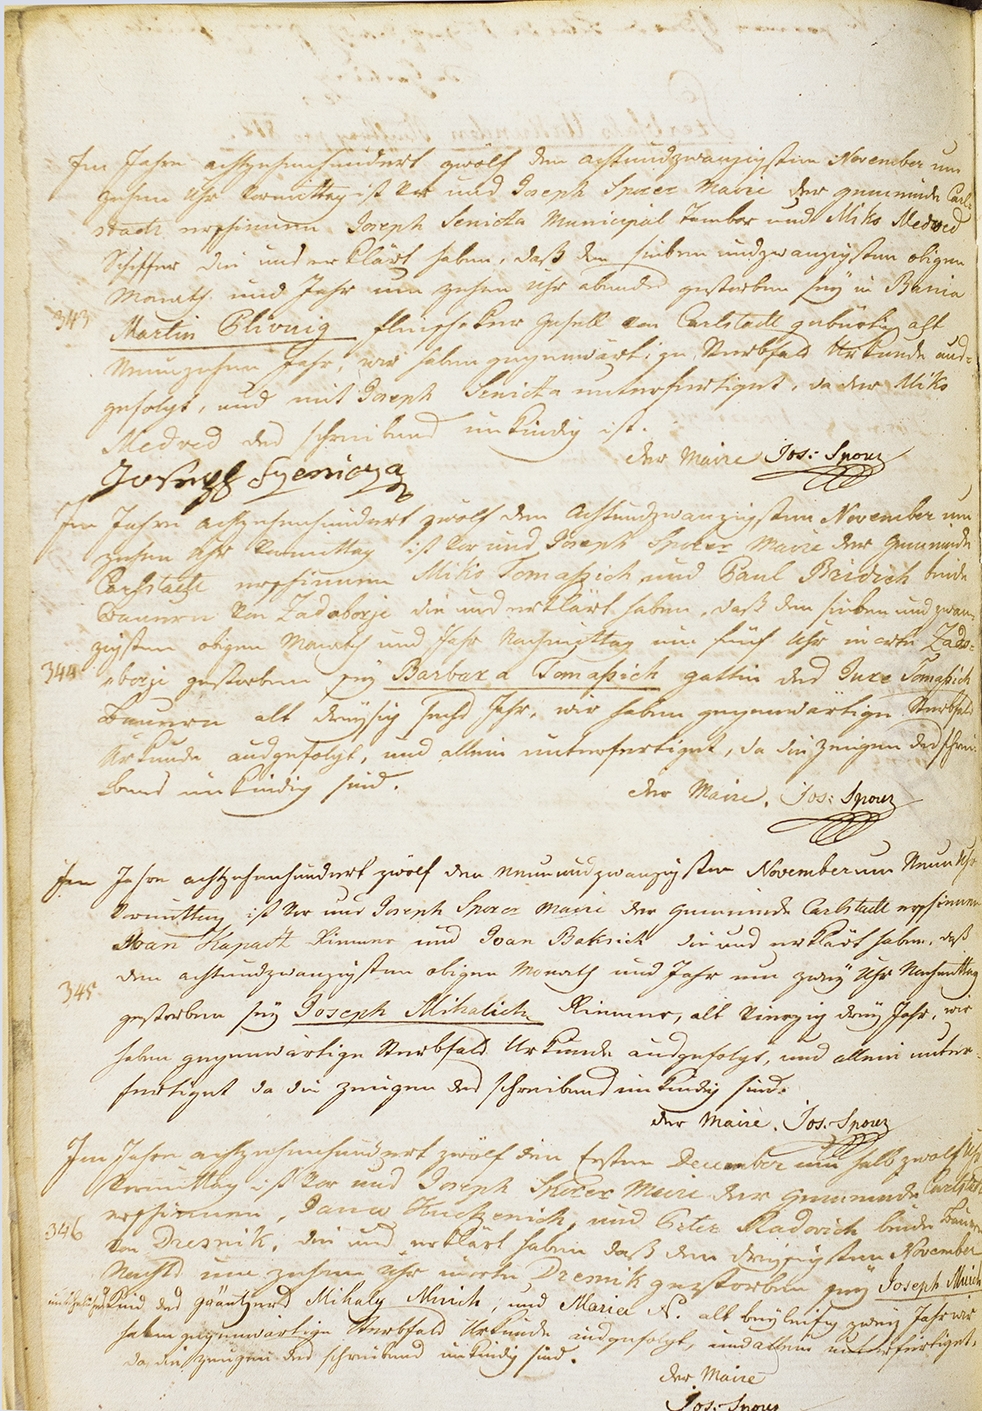 Im Jahre achtzehenhundert zwölf den achtundzwanzigsten November um
zehen Uhr Vormittag ist Vor uns Joseph Sporer Maire der gemeinde Carl-
stadt erschienen Joseph Senicza Municipal Tambor und Miko Medved
Schiffer die uns erklärt haben, daß den sieben undzwanzigsten obigen
Monaths und Jahr um zehen Uhr abends gestorben seÿ in Bania
343 Martin Plivnig gesell von Carlstadt gebürtig alt
Neunzehen Jahr, wir haben gegenwärtige Sterbfals Urkunde aus-
gefolgt, und mit Joseph Senicza unterfertiget, da der Miko
Medved des schreibens unkündig ist.
der Maire Jos: Sporer
Joseph Szenicza
Im Jahre achtzehenhundert zwölf den Achtundzwanzigsten November um
zehen Uhr Vormittag ist Vor uns Joseph Sporer Maire der Gemeinde
Carlstadt erschienen Miko Tomaßich und Paul Bridich beide
Bauern Von Zadoborje die uns erklärt haben, daß den sieben und zwan-
zigsten obigen Monaths und Jahr Nachmittag um fünf Uhr in Zado-
344 borje gestorben seÿ Barbara Tomaßich gattin des Jure Tomaßich
Bauern alt dreÿsig sechs Jahr, wir haben gegenwärtige Sterbfals
Urkunde ausgefolgt, und allein unterfertiget, da die Zeugen des schrei-
bens unkündig sind.
der Maire. Jos: Sporer
Im Jahre achtzehenhundert zwölf den neunundzwanzigsten November um Neun Uhr
Vormittag ist Vor uns Joseph Sporer Maire der Gemeinde Carlstadt erschienen
Ivan Kapacz Riemer und Ivan Baksich die uns erklärt haben, daß
den achtundzwanzigsten obigen Monaths und Jahr um zweÿ Uhr Nachmittag
345 gestorben seÿ Joseph Mihalich Riemer, alt Vierzig dreÿ Jahr, wir
haben gegenwärtige Sterbfals Urkunde ausgefolgt, und allein unter-
fertiget da die Zeugen des schreibens unkündig sind.
der Maire. Jos: Sporer
Im Jahre achtzehenhundert zwölf den Ersten December um halb zwolf Uhr
Vormittag ist Vor uns Joseph Sporer Maire der Gemeinde Carlstadt
346 erschienen, und Peter Radovich beide Bauern
Von Dresnik, die uns erklärt haben daß den dreÿsigsten November
Nachts um zehen Uhr Dresnik gestorben seÿ Joseph
Kind des Mihaly und Maria N. alt beÿleifig zweÿ Jahr wir
haben gegenwärtige Sterbfals Urkunde ausgefolgt, und allein unterfertiget,
da die Zeugen des schreibens unkündig sind.
der Maire
Jos: Sporer